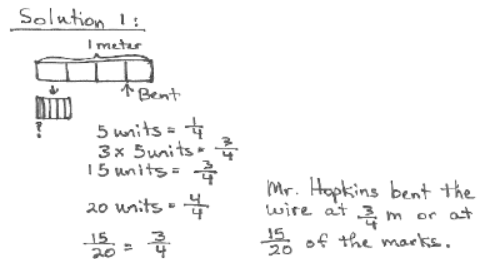 Solution 1:
1 meter
Bent
?
5 units = 1/4
3 x 5 units = 3/4
15 units = 3/4
20 units = 4/4
15/20 = 3/4
Mr. Hopkins bent the
wire at 3/4 m or at
15/20 of the marks.